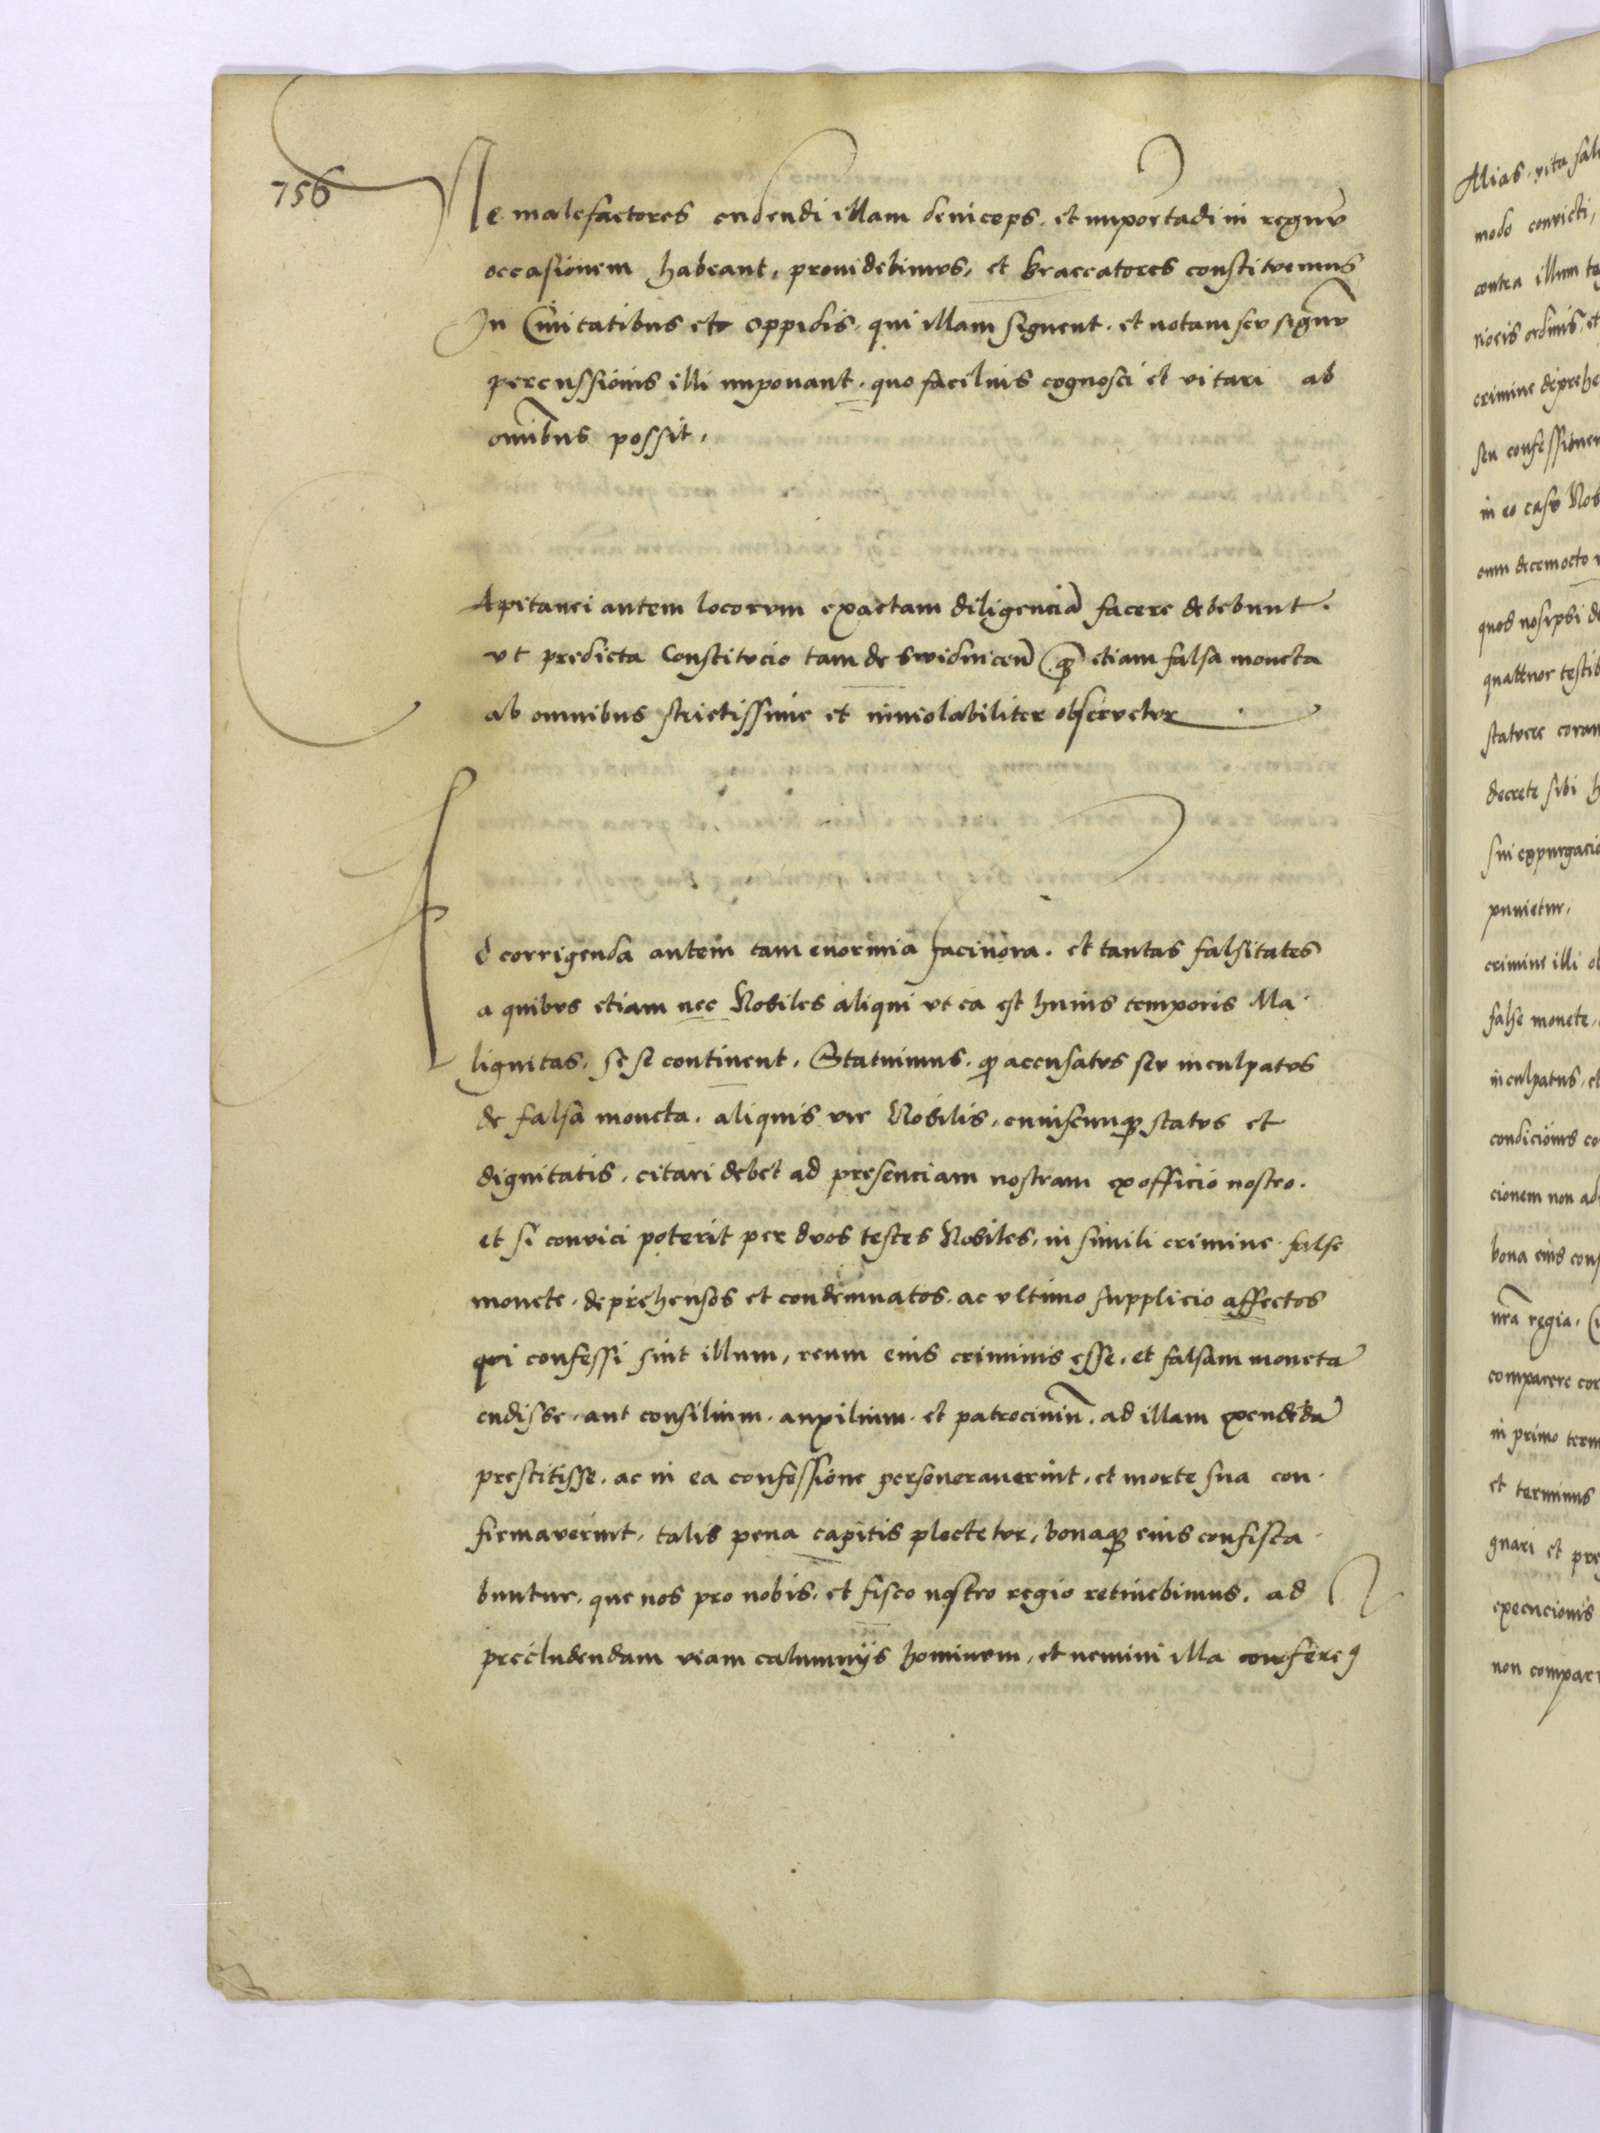 756
Ne malefactores cudendi illam deniceps. et importādi in regnū
occasionem habeant, providebimus, et braccatores constituemus
In Civitatibus et oppidis. qui illam signent. et notam seu signū
percussionis illi imponant. quo facilius cognosci et vitari ab
om̄ibus possit.
Capitanei autem locorum exactam diligenciā facere debebunt.
ut predicta Constitucio tam de swidnicen̄ q̄ etiam falsa moneta
ab omnibus strictissime et inviolabiliter observetur
Ad corrigenda autem tam enormia facinora. et tantas falsitates
a quibus etiam nec Nobiles aliqui ut ea est huius temporis Ma
lignitas. se se continent. Statuimus. q accusatus seu inculpatus
de falsa moneta. aliquis vir Nobilis. cuiuscunq status et
dignitatis. citari debet ad presenciam nostram ex officio nostro.
et si convici poterit per duos testes Nobiles, in simili crimine false
monete. deprehensos et condemnatos. ac ultimo supplicio affectos
qui confessi sint illum, reum eius criminis esse. et falsam monetā
cudisse. aut consilium. auxilium. et patrociniū. ad illam excudēdā
prestitisse. ac in ea confessione perseveraverint. et morte sua con
firmaverint. talis pena capitis plectetur, bonaq eius confisca
buntur. que nos pro nobis. et fisco nostro regio retinebimus. ad
precludendam viam calumnijs hominum, et nemini illa confereꝰ
Alias. vita
modo convicti,
contra illum
vioeis ordinis et
crimine
seu
in eo casu
cum decemocto
quos nosipsi
quattuor
statuere
decrete sibi
sui
punietur.
crimine illi
false monete.
inculpatus. et
condicionis
cionem non
bona eius
nr̄a regia.
comparere
in primo
et terminus
gnari et
execucionis
non